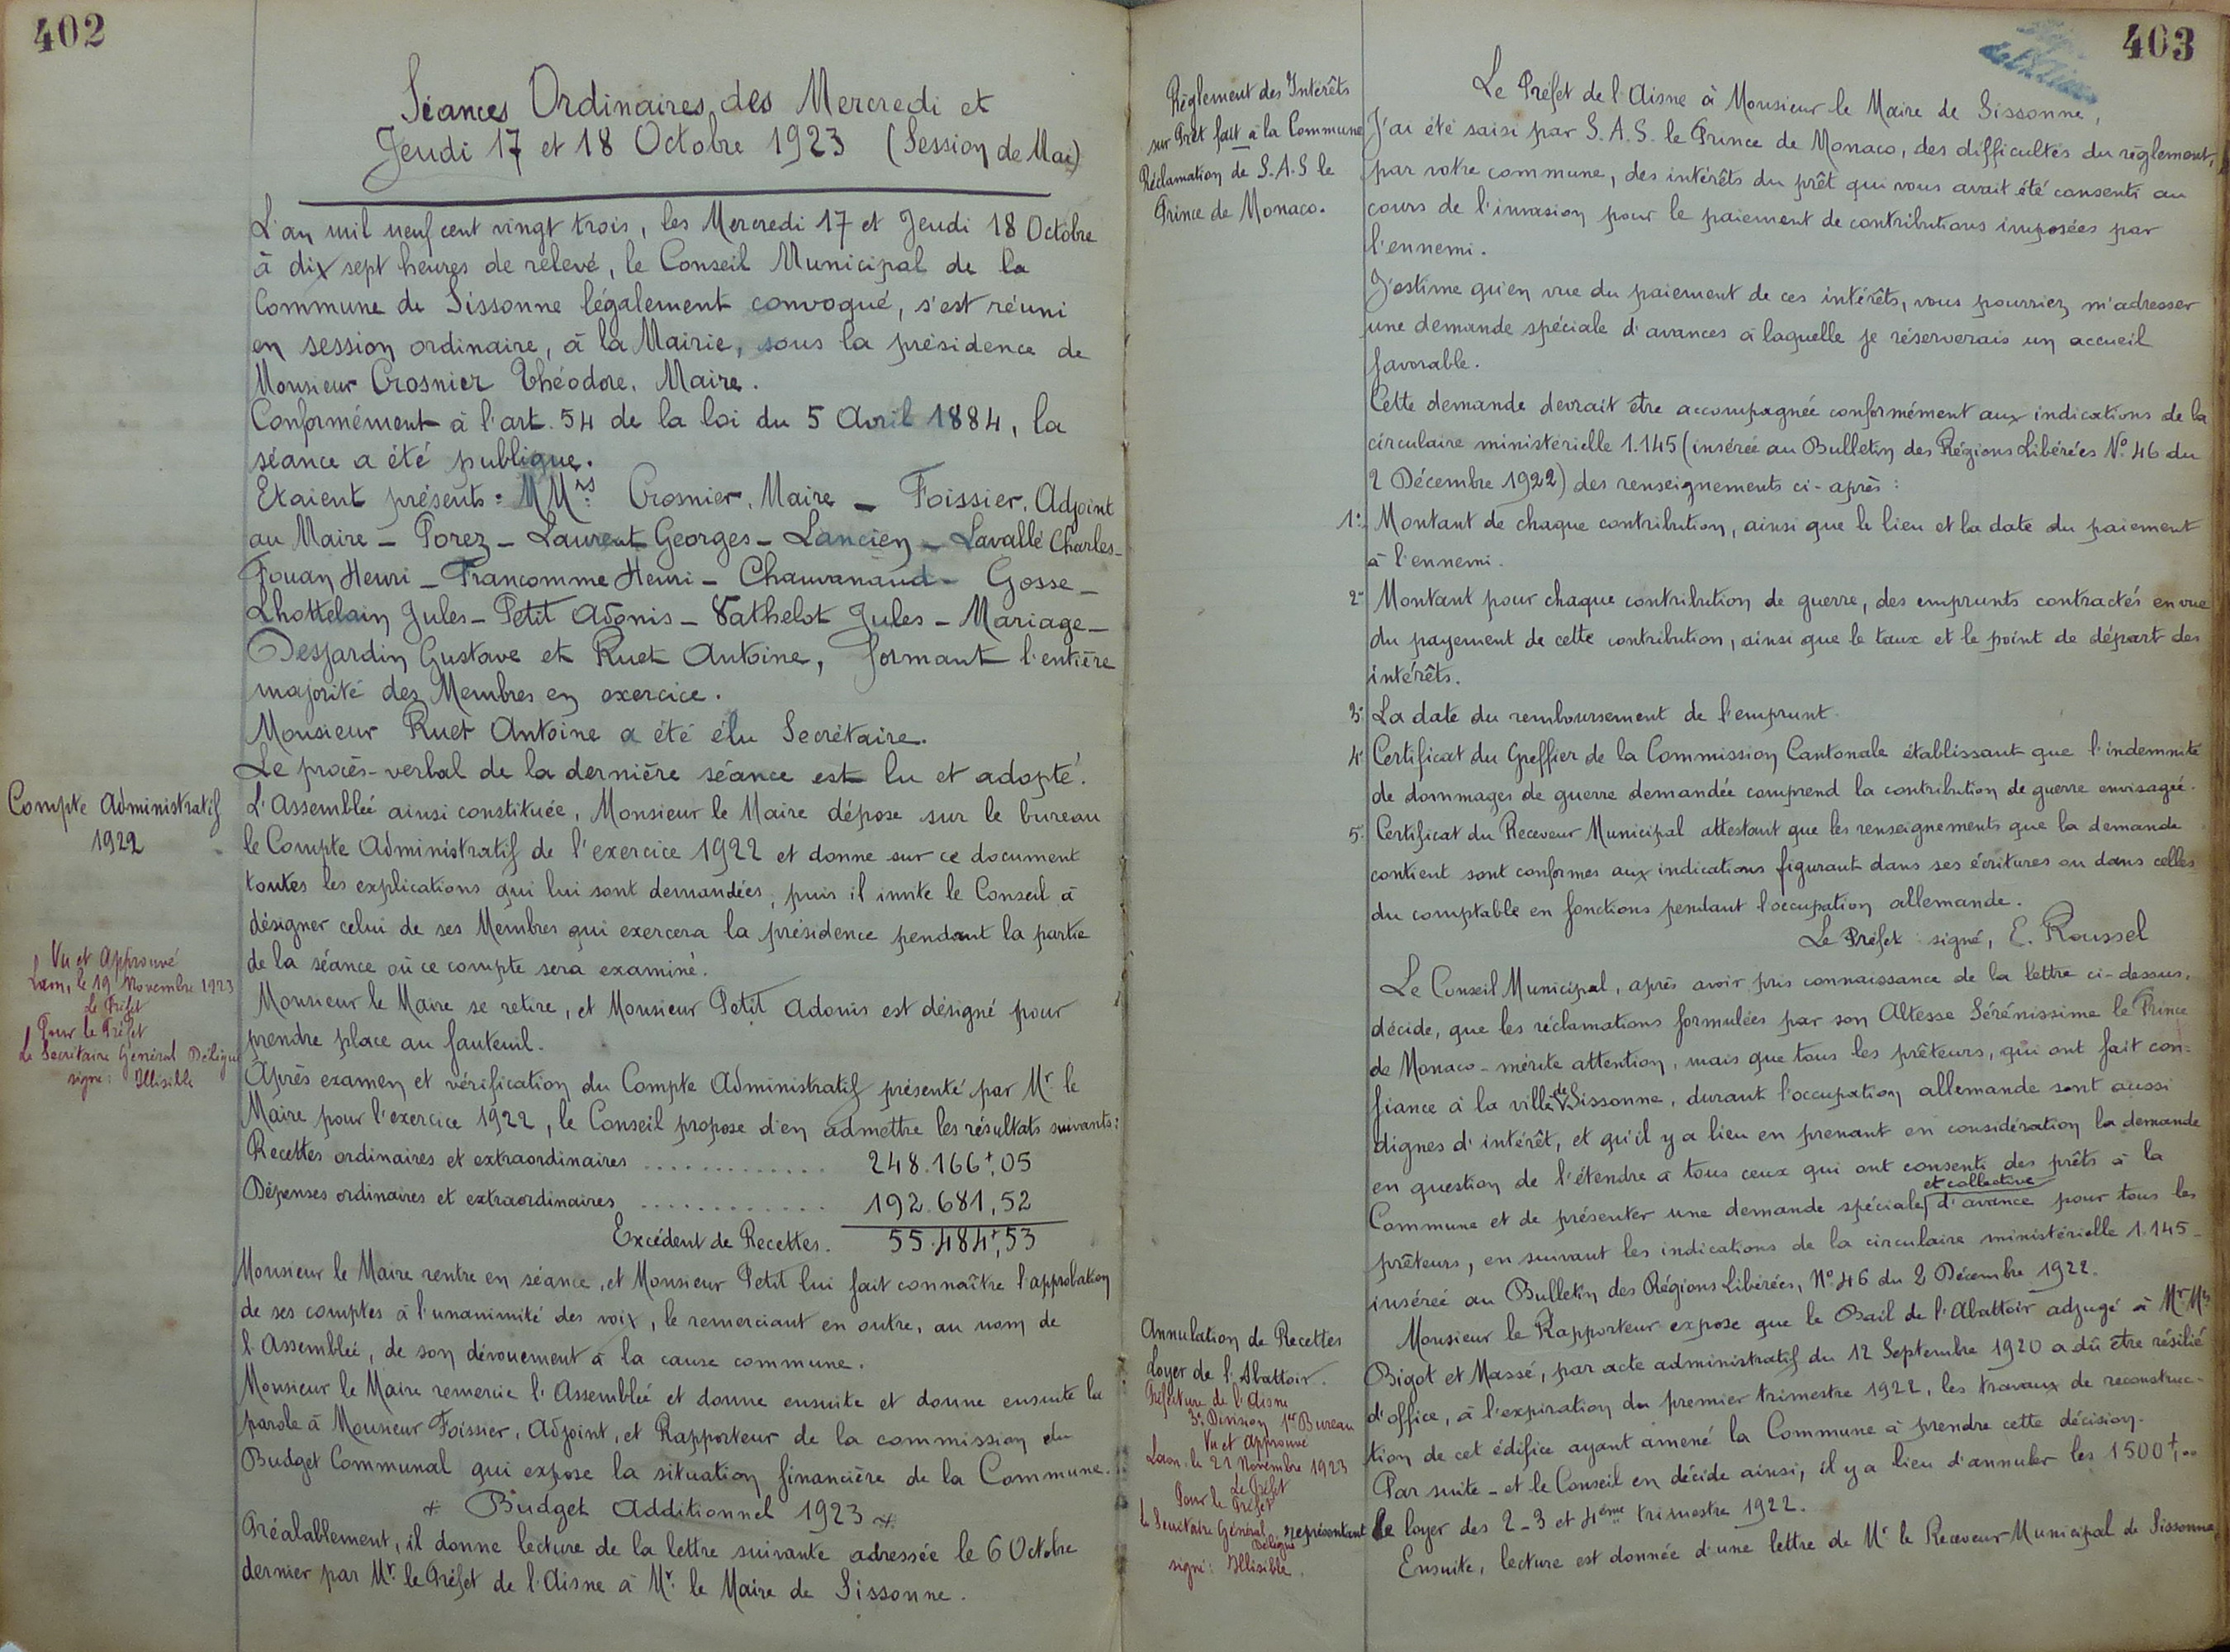 402
Séances Ordinaires des Mercredi et
Jeudi 17 et 18 Octobre 1923 (Session de Mai)
L'an mil neuf cent vingt trois, les Mercredi 17 et Jeudi 18 Octobre
à dix sept heures de relevé, le Conseil Municipal de la
Commune de Sissonne légalement convoqué, s'est réuni
en session ordinaire, à la Mairie, sous la présidence de
Monsieur Crosnier Théodore, Maire.
Conformément à l'art. 54 de la loi du 5 Avril 1884, la
séance a été publique.
Etaient présents: MMrs Crosnier, Maire - Foissier, Adjoint
au Maire - Porez - Laurent Georges - Lancien - Lavallé Charles -
Fouan Henri - Francomme Henri - Chauvanaud - Gosse -
Lhottelain Jules - Petit Adonis - Vathelot Jules - Mariage -
Desjardin Gustave et Ruet Antoine, formant l'entière
majorité des Membres en exercice.
Monsieur Ruet Antoine a été élu Secrétaire.
Le procès-verbal de la dernière séance est lu et adopté.
Compte Administratif
1922
L'Assemblée ainsi constituée, Monsieur le Maire dépose sur le bureau
le Compte Administratif de l'exercice 1922 et donne sur ce document
toutes les explications qui lui sont demandées, puis il invite le Conseil à
désigner celui de ses Membres qui exercera la présidence pendant la partie
de la séance où ce compte sera examiné.
Vu et Approuvé
Laon, le 19 Novembre 1923
Le Préfet
Pour le Préfet
Le Secrétaire Général Délégué
signé: Illisible
Monsieur le Maire se retire, et Monsieur Petit Adonis est désigné pour
prendre place au fauteuil.
Après examen et vérification du Compte Administratif présenté par Mr. le
Maire pour l'exercice 1922, le Conseil propose d'en admettre les résultats suivants:
Recettes ordinaires et extraordinaires ............. 248.166f,05
Dépenses ordinaires et extraordinaires ............. 192.681,52
Excédent de Recettes. 55.484f,53
Monsieur le Maire rentre en séance, et Monsieur Petit lui fait connaître l'approbation
de ses comptes à l'unanimité des voix, le remerciant en outre, au nom de
l'Assemblée, de son dévouement à la cause commune.
Monsieur le Maire remercie l'Assemblée et donne ensuite et donne ensuite la
parole à Monsieur Foissier, Adjoint, et Rapporteur de la commission du
Budget Communal qui expose la situation financière de la Commune.
Budget Additionnel 1923
Préalablement, il donne lecture de la lettre suivante adressée le 6 Octobre
dernier par Mr. le Préfet de l'Aisne à Mr. le Maire de Sissonne.
403
de l'Aisne
Règlement des Intérêts
sur Prêt fait à la Commune
Réclamation de S.A.S le
Prince de Monaco.
Le Préfet de l'Aisne à Monsieur le Maire de Sissonne,
J'ai été saisi par S.A.S. le Prince de Monaco, des difficultés du règlement,
par votre commune, des intérêts du prêt qui vous avait été consenti au
cours de l'invasion pour le paiement de contributions imposées par
l'ennemi.
J'estime qu'en vue du paiement de ces intérêts, vous pourriez m'adresser
une demande spéciale d'avances à laquelle je réserverais un accueil
favorable.
Cette demande devrait être accompagnée conformément aux indications de la
circulaire ministérielle 1.145 (insérée au Bulletin des Régions Libérées No 46 du
2 Décembre 1922) des renseignements ci-après:
1° Montant de chaque contribution, ainsi que le lieu et la date du paiement
à l'ennemi.
2° Montant pour chaque contribution de guerre, des emprunts contractés en vue
du payement de cette contribution, ainsi que le taux et le point de départ des
intérêts.
3° La date du remboursement de l'emprunt.
4° Certificat du Greffier de la Commission Cantonale établissant que l'indemnité
de dommages de guerre demandée comprend la contribution de guerre envisagée.
5° Certificat du Receveur Municipal attestant que les renseignements que la demande
contient sont conformes aux indications figurant dans ses écritures ou dans celles
du comptable en fonctions pendant l'occupation allemande.
Le Préfet signé, E. Roussel
Le Conseil Municipal, après avoir pris connaissance de la lettre ci-dessus,
décide, que les réclamations formulées par son Altesse Sérénissime le Prince
de Monaco - mérite attention, mais que tous les prêteurs, qui ont fait con-
fiance à la ville de Sissonne, durant l'occupation allemande sont aussi
dignes d'intérêt, et qu'il y a lieu en prenant en considération la demande
en question de l'étendre à tous ceux qui ont consenti des prêts à la
Commune et de présenter une demande spéciale et collective d'avance pour tous les
prêteurs, en suivant les indications de la circulaire ministérielle 1.145 -
insérée au Bulletin des Régions Libérées, No 46 du 2 Décembre 1922.
Annulation de Recettes
Loyer de l'Abattoir.
Préfecture de l'Aisne
3e Division 1er Bureau
Vu et Approuvé
Laon, le 21 Novembre 1923
Le Préfet
Pour le Préfet
le Secrétaire Général
Délégué
signé: Illisible.
Monsieur le Rapporteur expose que le Bail de l'Abattoir adjugé à Mr Mrs
Bigot et Massé, par acte administratif du 12 Septembre 1920 a dû être résilié
d'office, à l'expiration du premier trimestre 1922, les travaux de reconstruc-
tion de cet édifice ayant amené la Commune à prendre cette décision.
Par suite - et le Conseil en décide ainsi, il y a lieu d'annuler les 1500f,00
représentant le loyer des 2-3 et 4ème trimestre 1922.
Ensuite, lecture est donnée d'une lettre de Mr le Receveur Municipal de Sissonne,